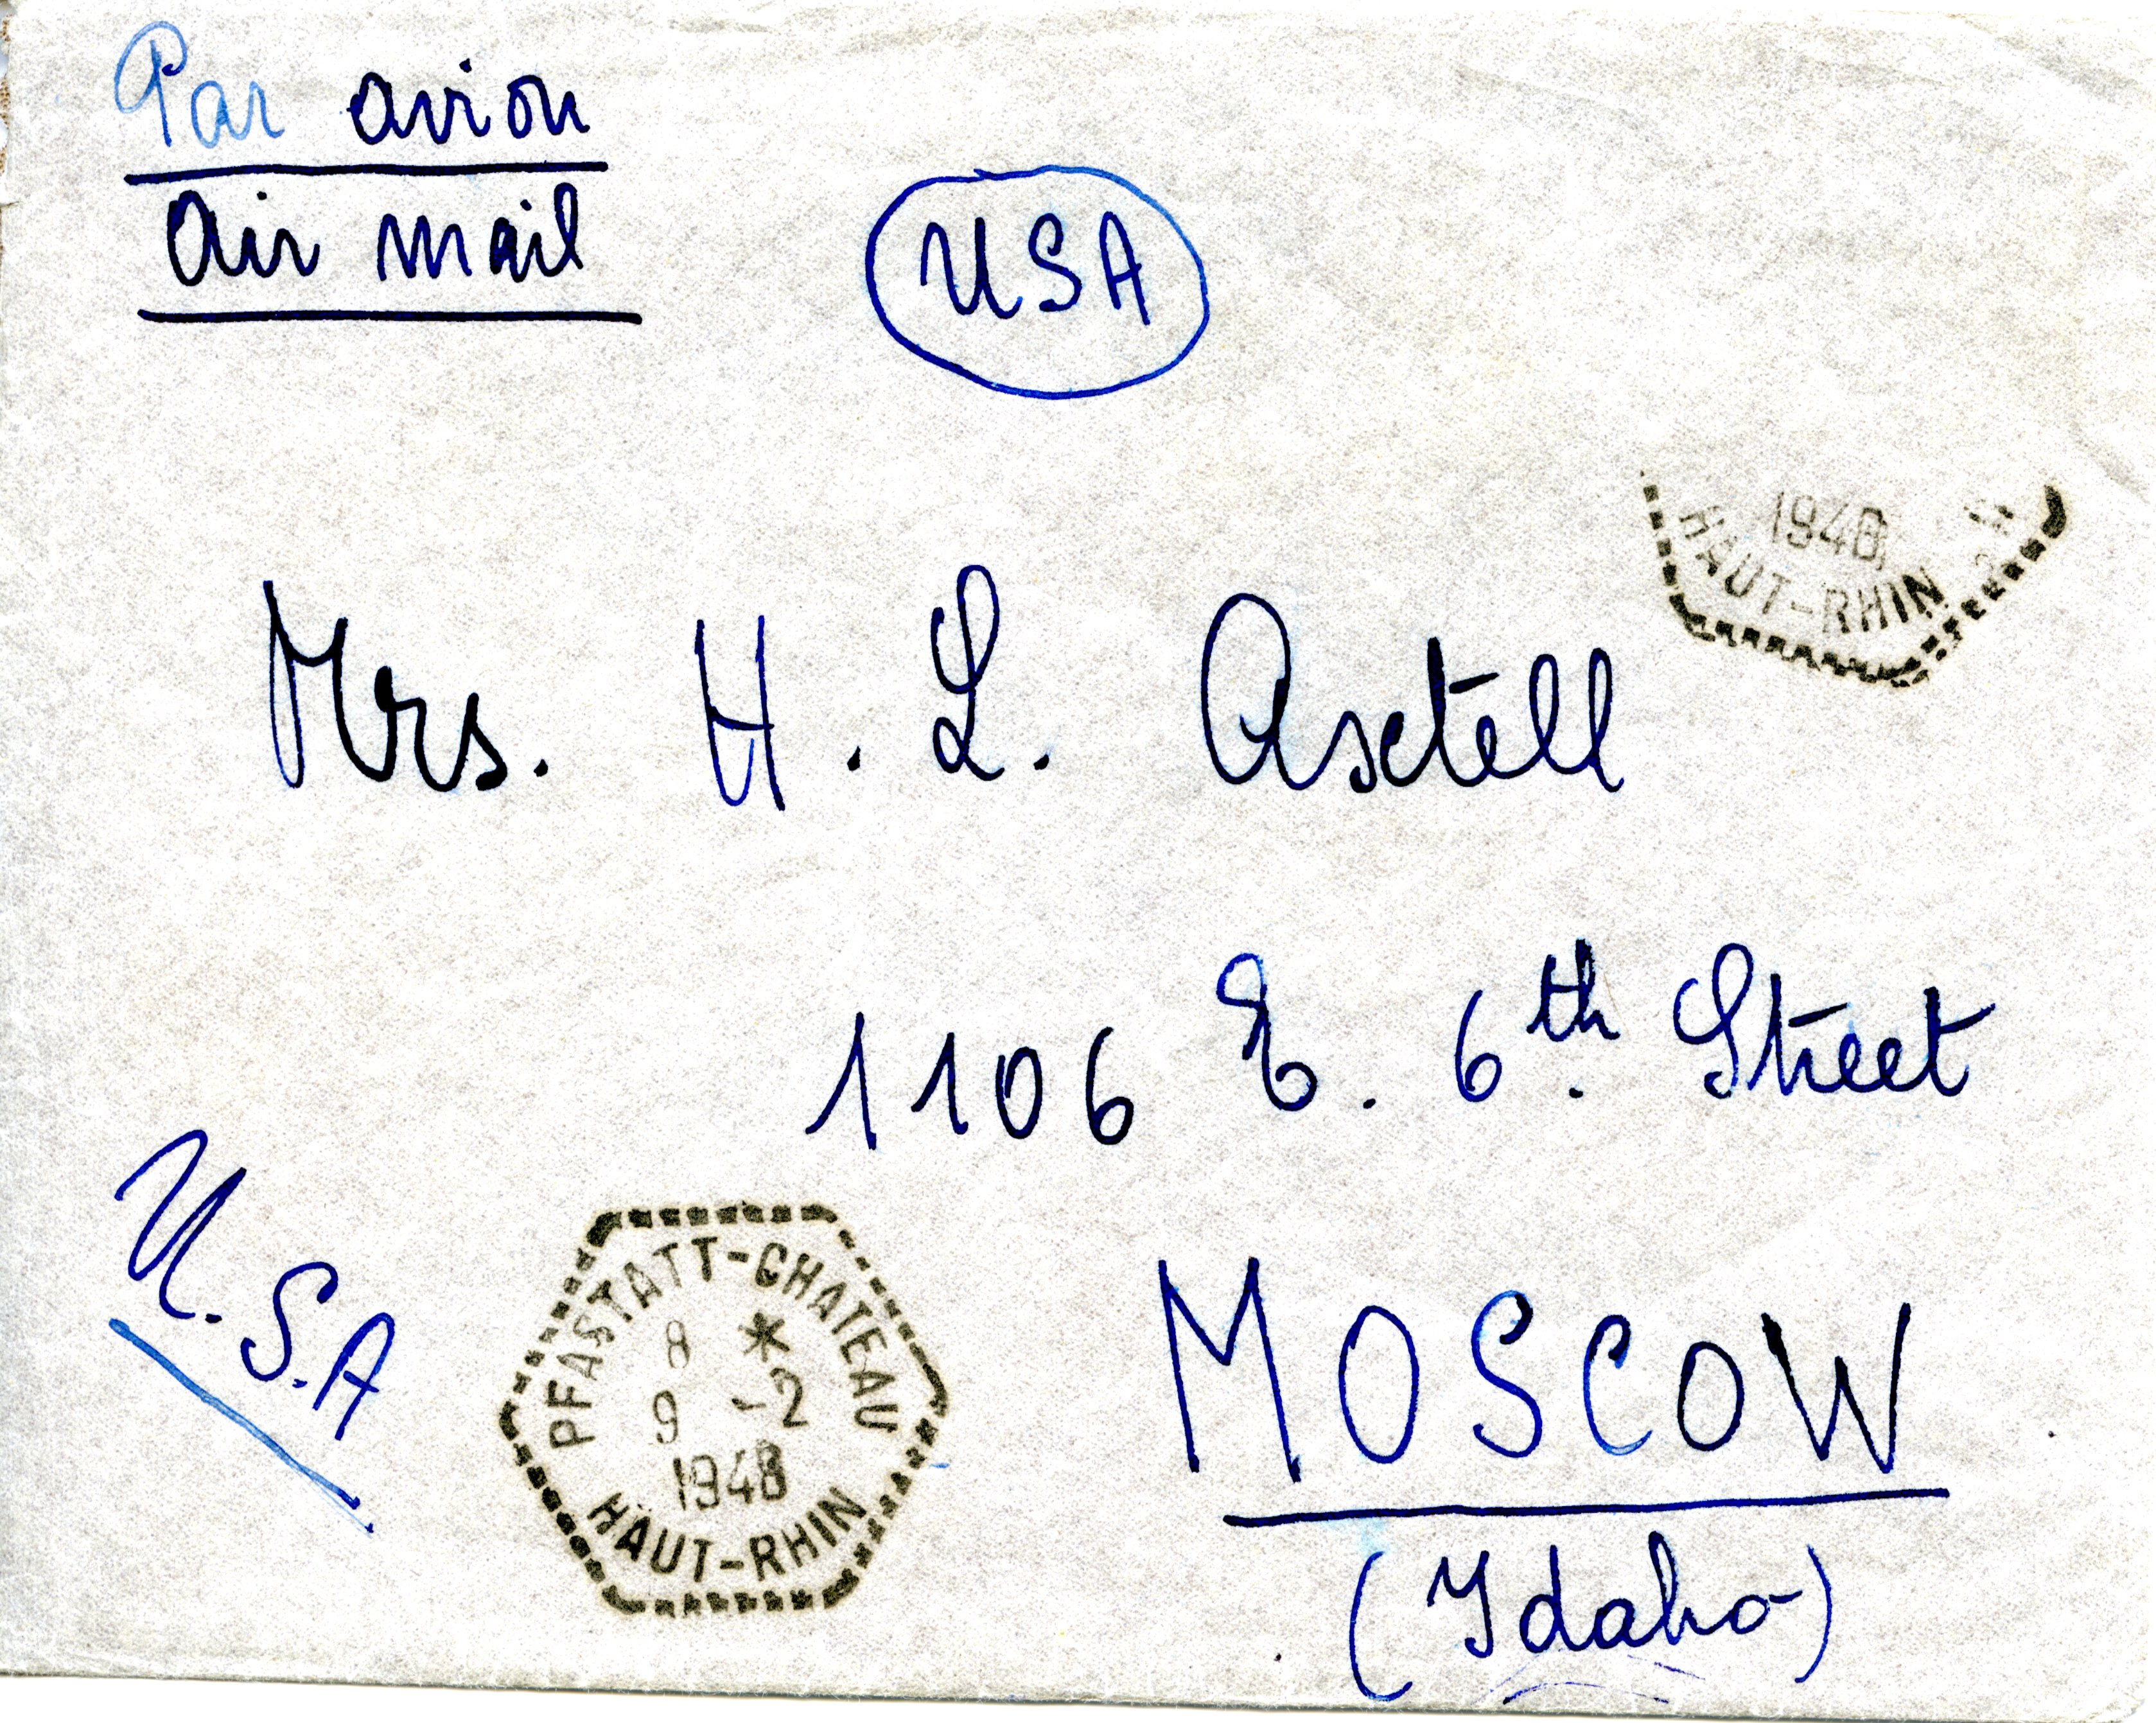 Par avion
Air mail
USA
1948
HAUT-RHIN
Mrs. H. L. Axtell
1106 E. 6th. Street
U.S.A
PFASTATT-CHATEAU
8 *
9 -2
1948
HAUT-RHIN
MOSCOW
(Idaho)